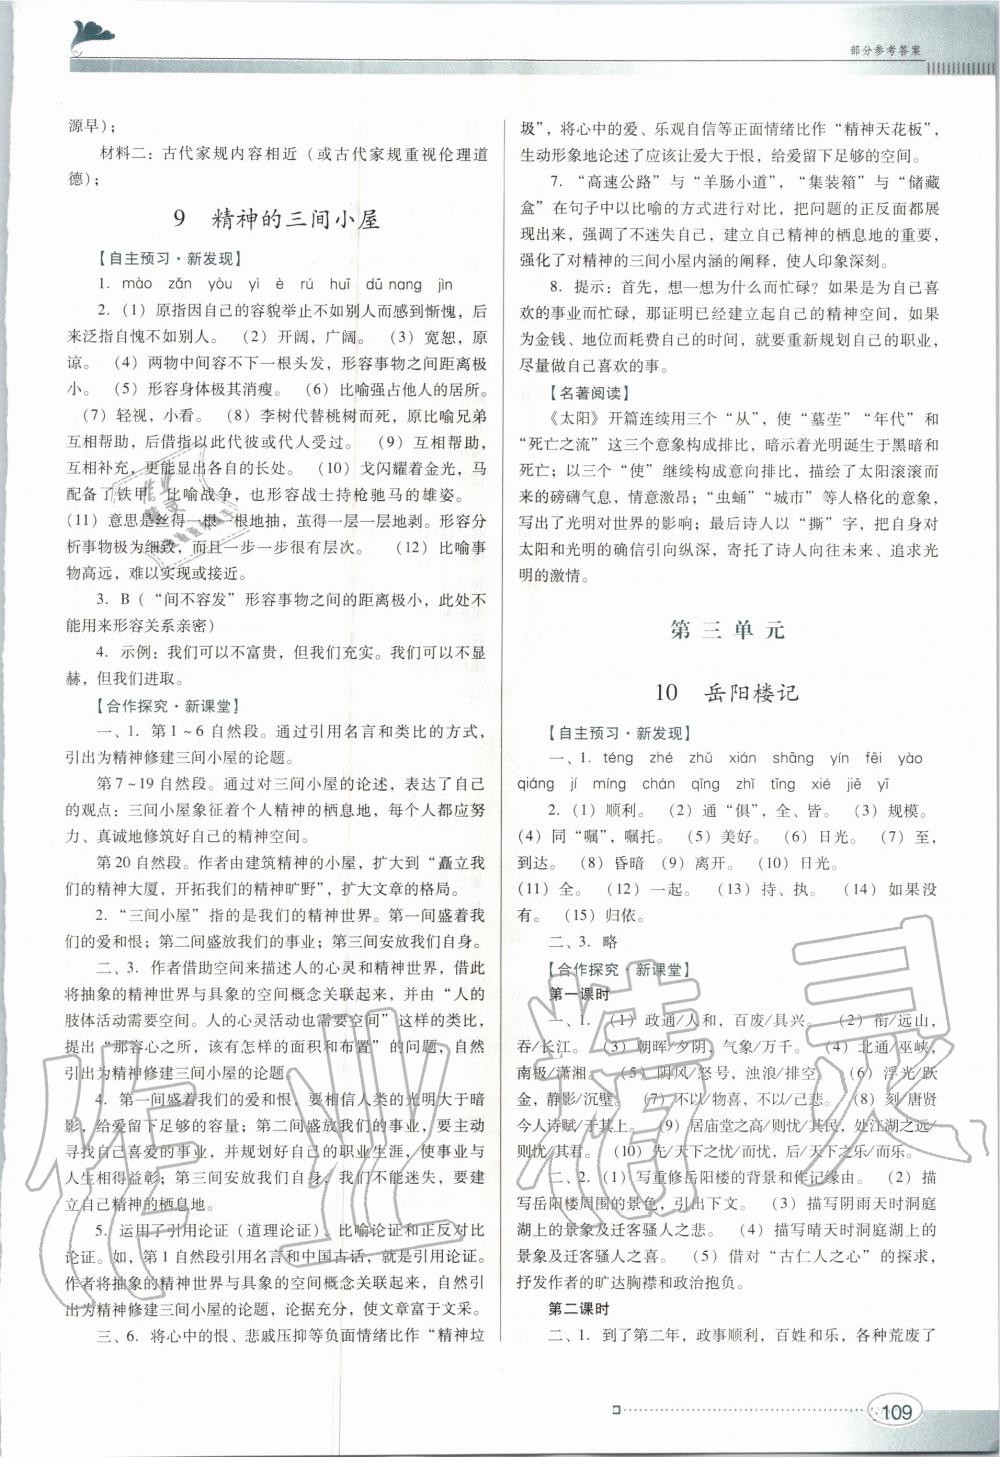 部分参考答案
源早);
材料二：古代家规内容相近（或古代家规重视伦理道
德);
9 精神的三间小屋
【自主预习·新发现】
1. mào zǎn yòu yì è rú huī dū nang jìn
2.（1）原指因自己的容貌举止不如别人而感到惭愧，后
来泛指自愧不如别人。（2）开阔，广阔。（3）宽恕，原
谅。（4）两物中间容不下一根头发，形容事物之间距离极
小。（5）形容身体极其消瘦。（6）比喻强占他人的居所。
（7）轻视，小看。（8）李树代替桃树而死，原比喻兄弟
互相帮助，后借指以此代彼或代人受过。（9）互相帮助，
互相补充，更能显出各自的长处。（10）戈闪耀着金光，马
配备了铁甲。比喻战争，也形容战士持枪驰马的雄姿。
（11）意思是丝得一根一根地抽，茧得一层一层地剥。形容分
析事物极为细致，而且一步一步很有层次。（12）比喻事
物高远，难以实现或接近。
3. B（“间不容发”形容事物之间的距离极小，此处不
能用来形容关系亲密）
4. 示例：我们可以不富贵，但我们充实。我们可以不显
赫，但我们进取。
【合作探究·新课堂】
一、1. 第1～6自然段。通过引用名言和类比的方式，
引出为精神修建三间小屋的论题。
第7～19自然段。通过对三间小屋的论述，表达了自己
的观点：三间小屋象征着个人精神的栖息地，每个人都应努
力、真诚地修筑好自己的精神空间。
第20自然段。作者由建筑精神的小屋，扩大到“矗立我
们的精神大厦，开拓我们的精神旷野”，扩大文章的格局。
2.“三间小屋”指的是我们的精神世界。第一间盛着我
们的爱和恨；第二间盛放我们的事业；第三间安放我们自身。
二、3. 作者借助空间来描述人的心灵和精神世界，借此
将抽象的精神世界与具象的空间概念关联起来，并由“人的
肢体活动需要空间。人的心灵活动也需要空间”这样的类比，
提出“那容心之所，该有怎样的面积和布置”的问题，自然
引出为精神修建三间小屋的论题。
4. 第一间盛着我们的爱和恨，要相信人类的光明大于暗
影，给爱留下足够的容量；第二间盛放我们的事业，要主动
寻找自己喜爱的事业，并规划好自己的职业生涯，使事业与
人生相得益彰；第三间安放我们自身，我们不能迷失，要建
立自己精神的栖息地。
5. 运用了引用论证（道理论证）、比喻论证和正反对比
论证。如，第1自然段引用名言和中国古话，就是引用论证。
作者将抽象的精神世界与具象的空间概念关联起来，自然引
出为精神修建三间小屋的论题，论据充分，使文章富于文采。
三、6. 将心中的恨、悲戚压抑等负面情绪比作“精神垃
圾”，将心中的爱、乐观自信等正面情绪比作“精神天花板”，
生动形象地论述了应该让爱大于恨，给爱留下足够的空间。
7.“高速公路”与“羊肠小道”，“集装箱”与“储藏
盒”在句子中以比喻的方式进行对比，把问题的正反面都展
现出来，强调了不迷失自己，建立自己精神的栖息地的重要，
强化了对精神的三间小屋内涵的阐释，使人印象深刻。
8. 提示：首先，想一想为什么而忙碌？如果是为自己喜
欢的事业而忙碌，那证明已经建立起自己的精神空间，如果
为金钱、地位而耗费自己的时间，就要重新规划自己的职业，
尽量做自己喜欢的事。
【名著阅读】
《太阳》开篇连续用三个“从”，使“墓茔”“年代”和
“死亡之流”这三个意象构成排比，暗示着光明诞生于黑暗和
死亡；以三个“使”继续构成意向排比，描绘了太阳滚滚而
来的磅礴气息，情意激昂；“虫蛹”“城市”等人格化的意象，
写出了光明对世界的影响；最后诗人以“撕”字，把自身对
太阳和光明的确信引向纵深，寄托了诗人向往未来、追求光
明的激情。
第三单元
10 岳阳楼记
【自主预习·新发现】
一、1. téng zhé zhǔ xián shāng yín fēi yào
qiáng jí míng chán qǐng zhǐ tīng xié jiē yī
2.（1）顺利。（2）通“俱”，全、皆。（3）规模。
（4）同“嘱”，嘱托。（5）美好。（6）日光。（7）至，
到达。（8）昏暗（9）离开。（10）日光。
（11）全。（12）一起。（13）持、执。（14）如果没
有。（15）归依。
二、3. 略
【合作探究·新课堂】
第一课时
一、1.（1）政通/人和，百废/具兴。（2）衔/远山，
吞/长江。（3）朝晖/夕阴，气象/万千。（4）北通/巫峡，
南极/潇湘。（5）阴风/怒号，浊浪/排空。（6）浮光/跃
金，静影/沉璧。（7）不以/物喜，不以/己悲。（8）刻/唐贤
今人诗赋/于其上。（9）居庙堂之高/则忧/其民，处江湖之远/
则忧/其君。（10）先/天下之忧/而忧，后/天下之乐/而乐。
二、2.（1）写重修岳阳楼的背景和作记缘由。（2）描
写岳阳楼周围的景色，引出下文。（3）描写阴雨天时洞庭
湖上的景象及迁客骚人之悲。（4）描写晴天时洞庭湖上的
景象及迁客骚人之喜。（5）借对“古仁人之心”的探求，
抒发作者的旷达胸襟和政治抱负。
第二课时
二、1. 到了第二年，政事顺利，百姓和乐，各种荒废了
109
作业精灵